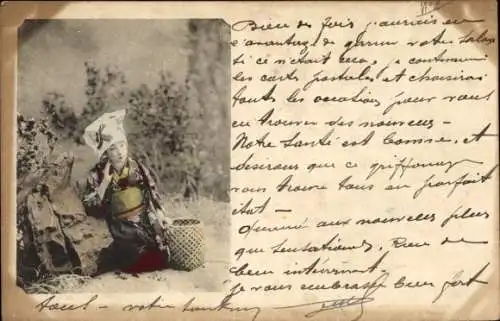 Bien des fois j'aurais eu
l'avantage de garnir votre salon
si ce n'était cela, je continuerai
les cartes postales et choisirai
toutes les occasions pour vous
en trouver des nouvelles -
Notre Santé est bonne, et
désirons que ce griffonnage
vous trouve tous en parfait
état -
Quand aux nouvelles plus
que sensationnel. Rien de
bien intéressant -
je vous embrasse bien fort
tout - votre